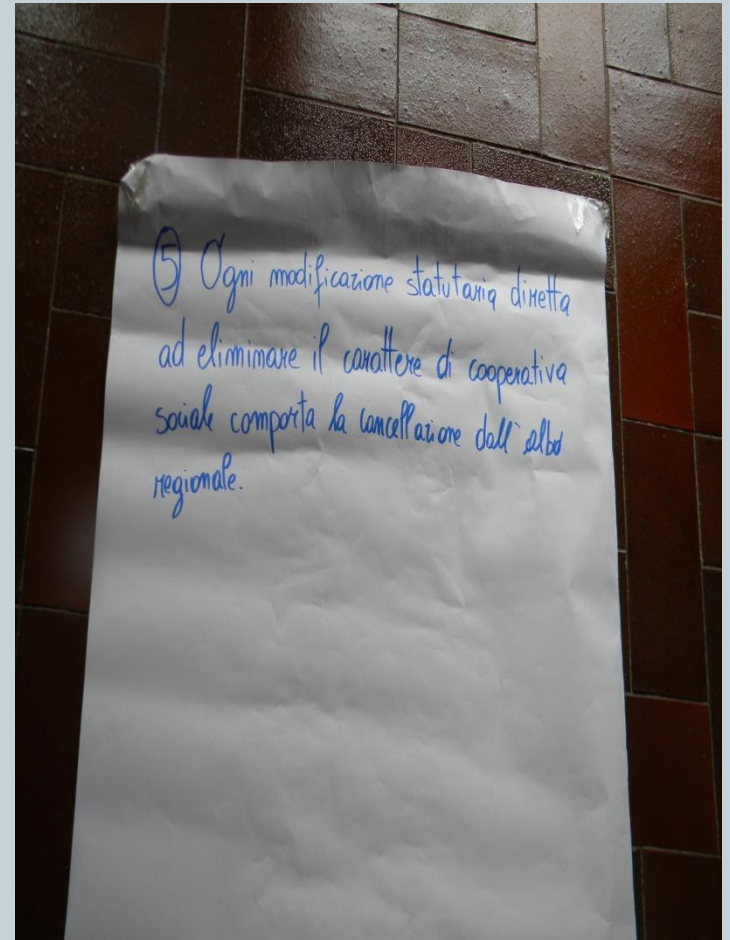 ⑤ Ogni modificazione statutaria diretta
ad eliminare il carattere di cooperativa
sociale comporta la cancellazione dall'albo
regionale.